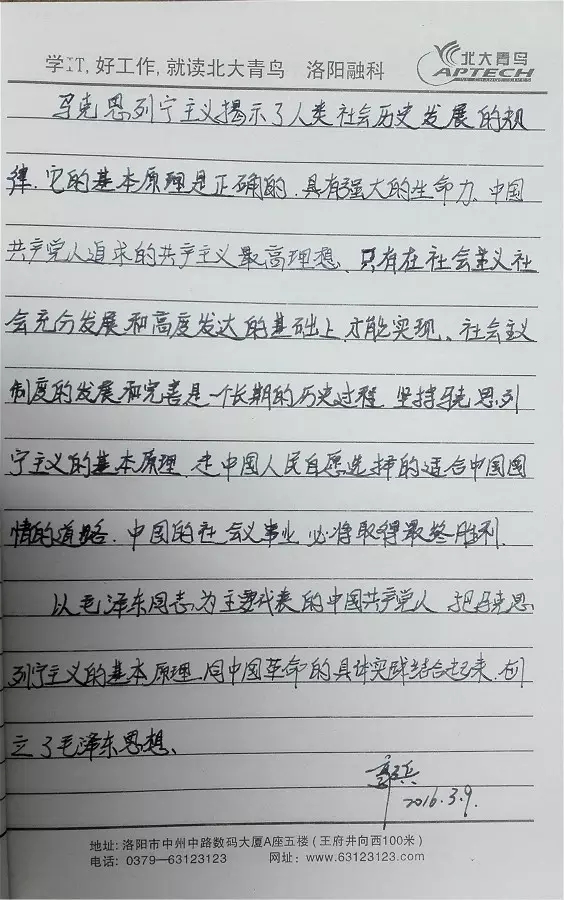 学IT,好工作,就读北大青鸟 洛阳融科
北大青鸟
APTECH
IT CHANGES LIVES
马克思列宁主义揭示了人类社会历史发展的规
律.它的基本原理是正确的.具有强大的生命力.中国
共产党人追求的共产主义最高理想.只有在社会主义社
会充分发展和高度发达的基础上.才能实现.社会主义
制度的发展和完善是一个长期的历史过程.坚持马克思列
宁主义的基本原理.走中国人民自愿选择的适合中国国
情的道路.中国的社会义事业.必将取得最终胜利.
以毛泽东同志为主要代表的中国共产党人.把马克思
列宁主义的基本原理同中国革命的具体实践结合起来.创
立了毛泽东思想、
2016.3.9.
地址: 洛阳市中州中路数码大厦A座五楼(王府井向西100米)
电话: 0379—63123123 网址: www.63123123.com